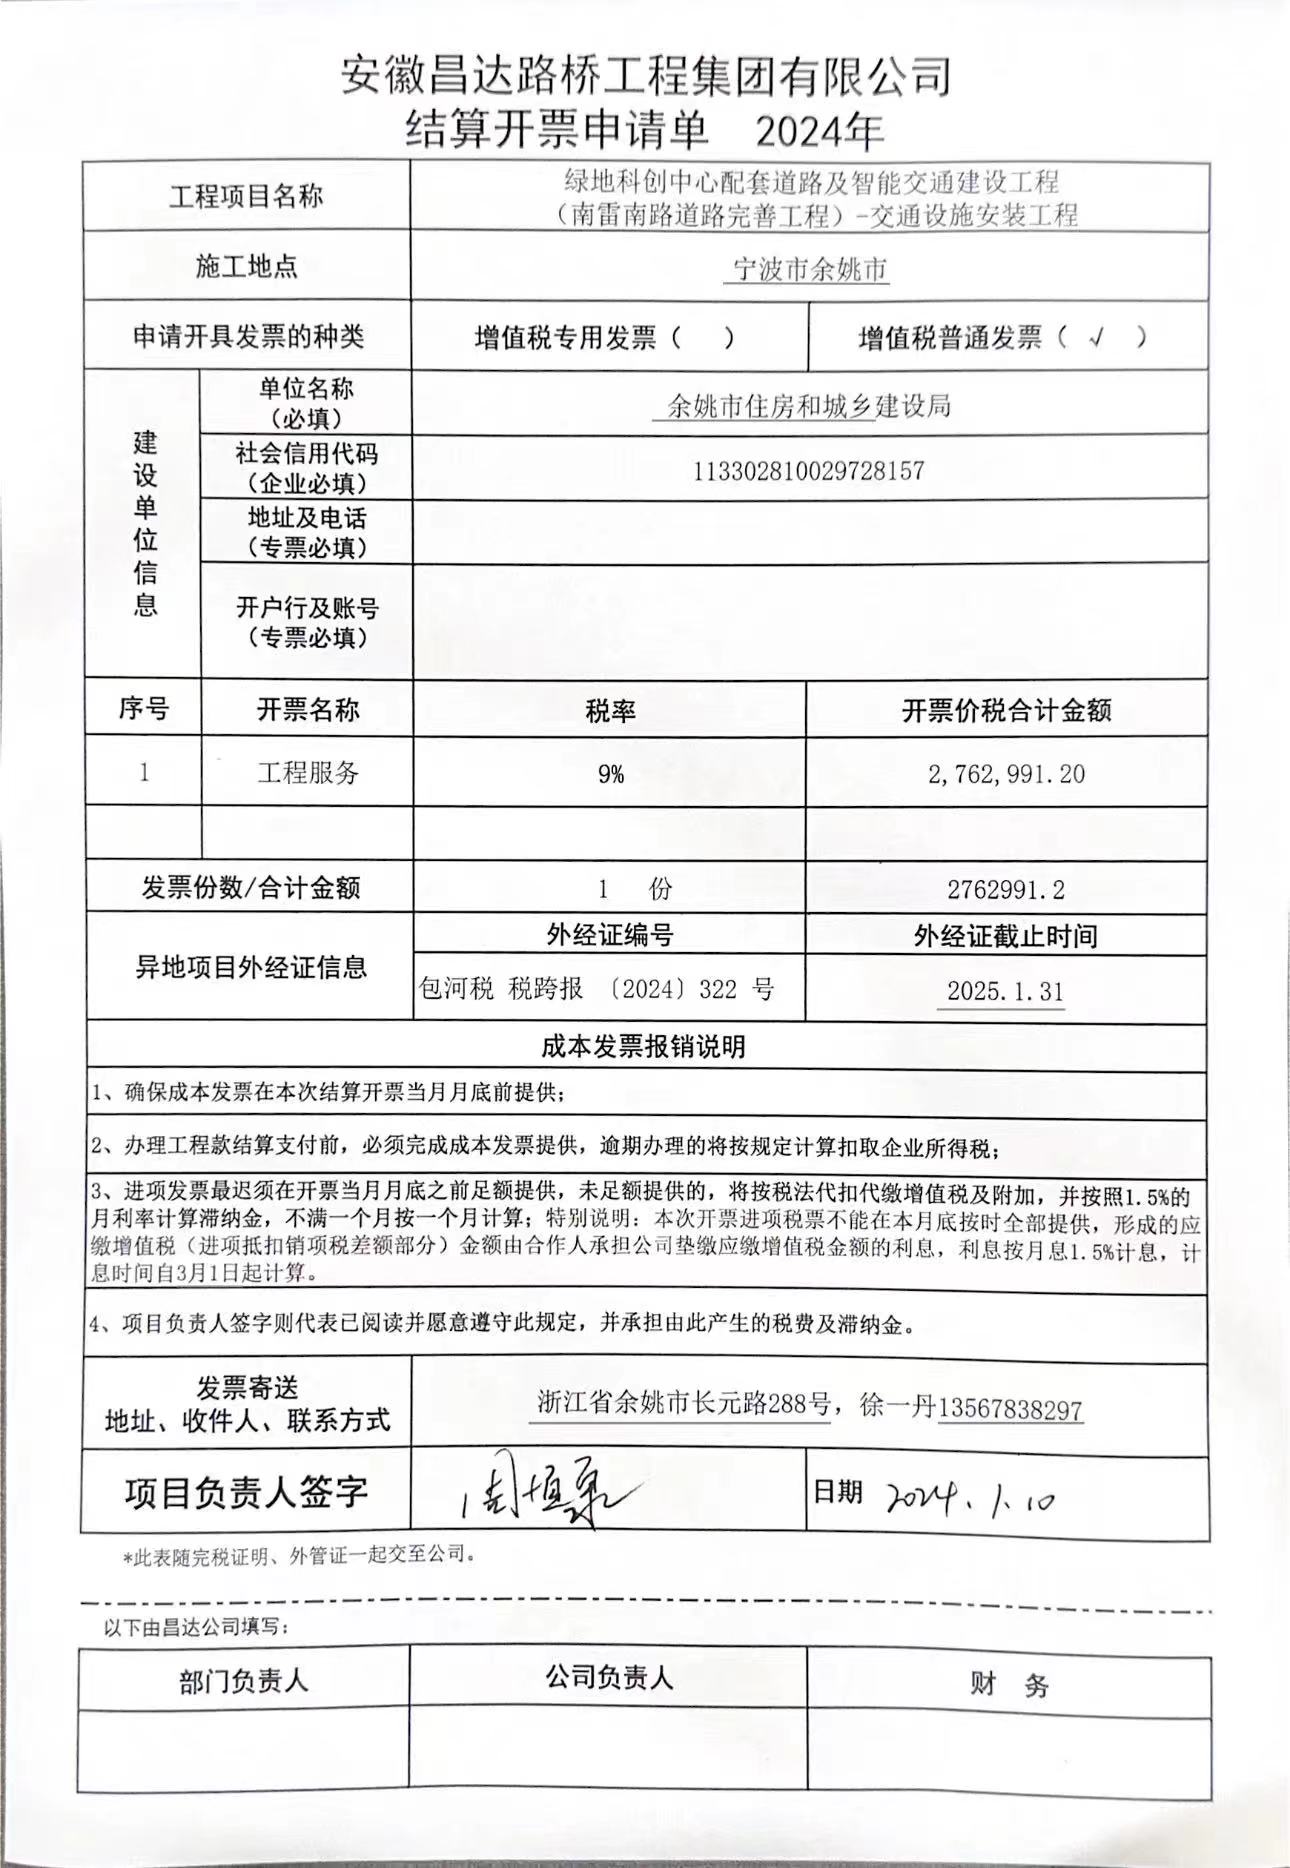 安徽昌达路桥工程集团有限公司
结算开票申请单 2024年
工程项目名称
绿地科创中心配套道路及智能交通建设工程
（南雷南路道路完善工程）-交通设施安装工程
施工地点
宁波市余姚市
申请开具发票的种类
增值税专用发票（ ）
增值税普通发票（ √ ）
建设单位信息
单位名称
（必填）
余姚市住房和城乡建设局
社会信用代码
（企业必填）
113302810029728157
地址及电话
（专票必填）
开户行及账号
（专票必填）
序号 开票名称 税率 开票价税合计金额
1 工程服务 9% 2,762,991.20
发票份数/合计金额 1 份 2762991.2
异地项目外经证信息
外经证编号 外经证截止时间
包河税 税跨报 〔2024〕322 号 2025.1.31
成本发票报销说明
1、确保成本发票在本次结算开票当月月底前提供；
2、办理工程款结算支付前，必须完成成本发票提供，逾期办理的将按规定计算扣取企业所得税；
3、进项发票最迟须在开票当月月底之前足额提供，未足额提供的，将按税法代扣代缴增值税及附加，并按照1.5%的
月利率计算滞纳金，不满一个月按一个月计算；特别说明：本次开票进项税票不能在本月底按时全部提供，形成的应
缴增值税（进项抵扣销项税差额部分）金额由合作人承担公司垫缴应缴增值税金额的利息，利息按月息1.5%计息，计
息时间自3月1日起计算。
4、项目负责人签字则代表已阅读并愿意遵守此规定，并承担由此产生的税费及滞纳金。
发票寄送
地址、收件人、联系方式
浙江省余姚市长元路288号，徐一丹13567838297
项目负责人签字
日期 2024.1.10
*此表随完税证明、外管证一起交至公司。
以下由昌达公司填写：
部门负责人 公司负责人 财 务